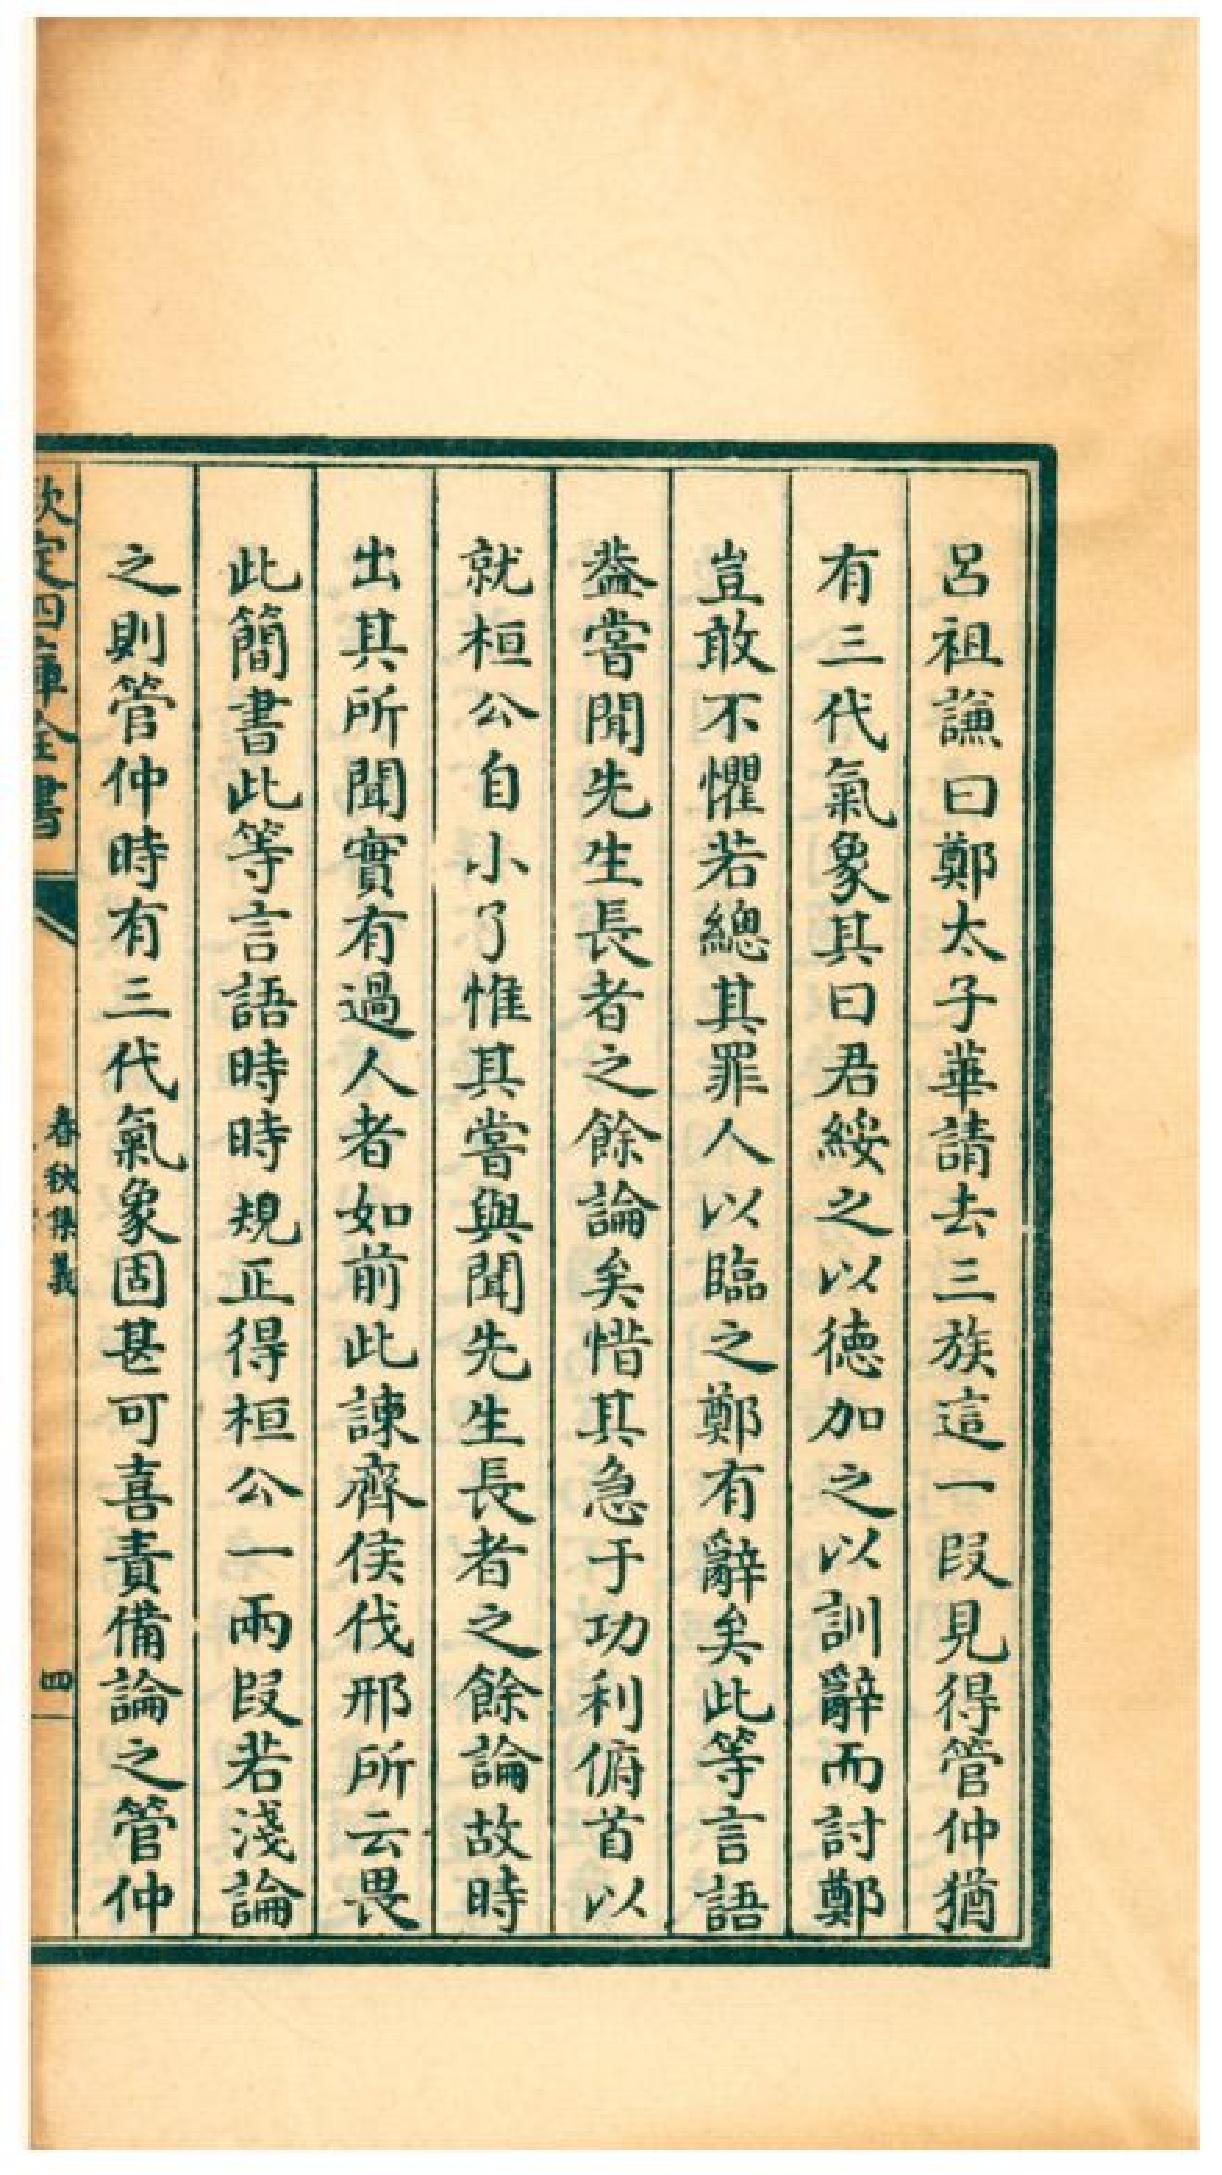 呂祖謙曰鄭太子華請去三族這一段見得管仲猶
有三代氣象其曰君綏之以德加之以訓辭而討鄭
豈敢不懼若總其罪人以臨之鄭有辭矣此等言語
葢嘗聞先生長者之餘論矣惜其急于功利俯首以
就桓公自小了惟其嘗與聞先生長者之餘論故時
出其所聞實有過人者如前此諫齊侯伐邢所云畏
此簡書此等言語時時規正得桓公一兩段若淺論
之則管仲時有三代氣象固甚可喜責備論之管仲
欽定四庫全書
春秋集義
四